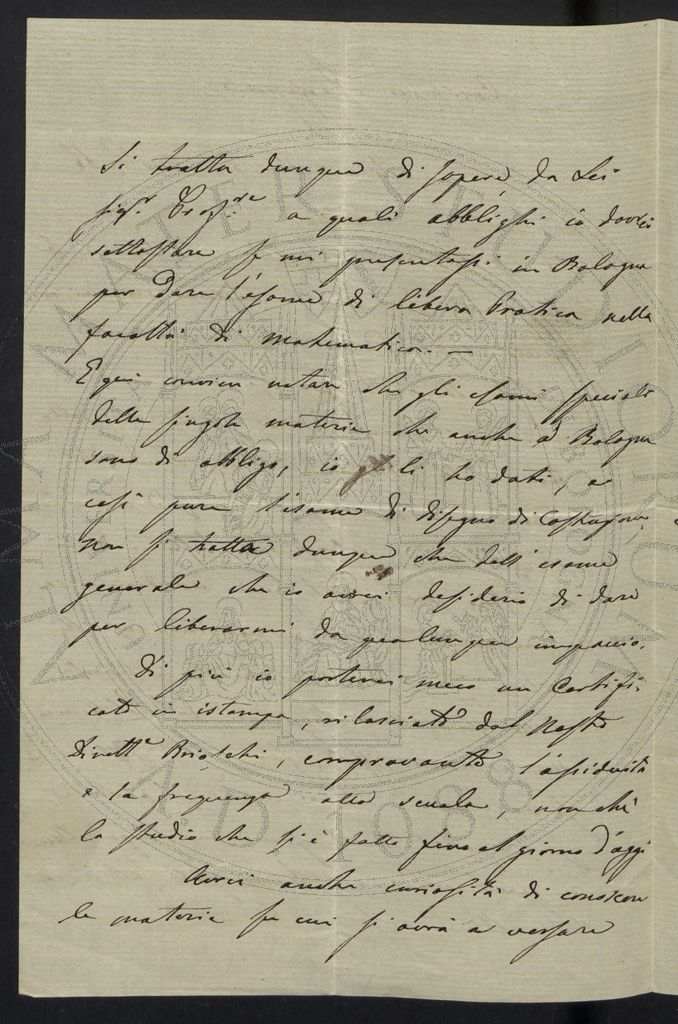 Si tratta dunque di sapere, da Lei
Sigr. Profre. a quali obblighi io dovrei
sottostare se mi presentassi in Bologna
per dare l'esame di libera Pratica nella
facoltà di matematica. —
E qui convien notare che gli esami speciali
delle singole materie che anche a Bologna
sono di obbligo, io li ho dati, e
così pure l'esame di disegno di Costruzione,
non si tratta dunque che dell'esame
generale che io avrei desiderio di dare
per liberarmi da qualunque impaccio.
Di più io porterei meco un Certifi-
cato in istampa, rilasciato dal nostro
Dirette Brioschi, comprovante l'assiduità
e la frequenza alla scuola, nonchè
lo studio che si è fatto fino al giorno d'oggi
Avrei anche curiosità di conoscere
le materie su cui si avrà a versare